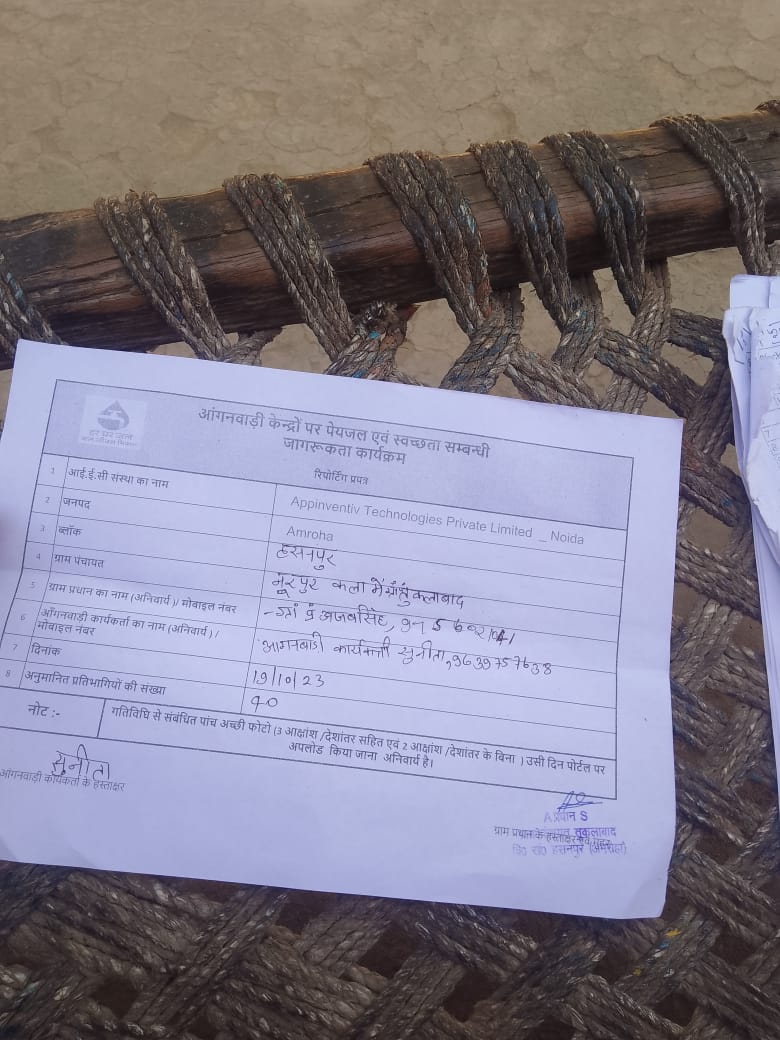 हर घर जल
जल जीवन मिशन
आँगनवाड़ी केन्द्रों पर पेयजल एवं स्वच्छता सम्बन्धी
जागरूकता कार्यक्रम
रिपोर्टिंग प्रपत्र
1 आई.ई.सी संस्था का नाम Appinventiv Technologies Private Limited _ Noida
2 जनपद Amroha
3 ब्लॉक हसनपुर
4 ग्राम पंचायत नूरपुर कला
5 ग्राम प्रधान का नाम (अनिवार्य)/ मोबाइल नंबर अजबसिंह,
6 आँगनवाड़ी कार्यकर्ता का नाम (अनिवार्य) /
मोबाइल नंबर आगनबाडी कार्यकर्ती सुनीता, 9639757638
7 दिनांक 19/10/23
8 अनुमानित प्रतिभागियों की संख्या 40
नोट :- गतिविधि से संबंधित पांच अच्छी फोटो (3 आक्षांश /देशांतर सहित एवं 2 आक्षांश /देशांतर के बिना ) उसी दिन पोर्टल पर
अपलोड किया जाना अनिवार्य है।
सुनीता
आँगनवाड़ी कार्यकर्ता के हस्ताक्षर
ग्राम प्रधान के हस्ताक्षर